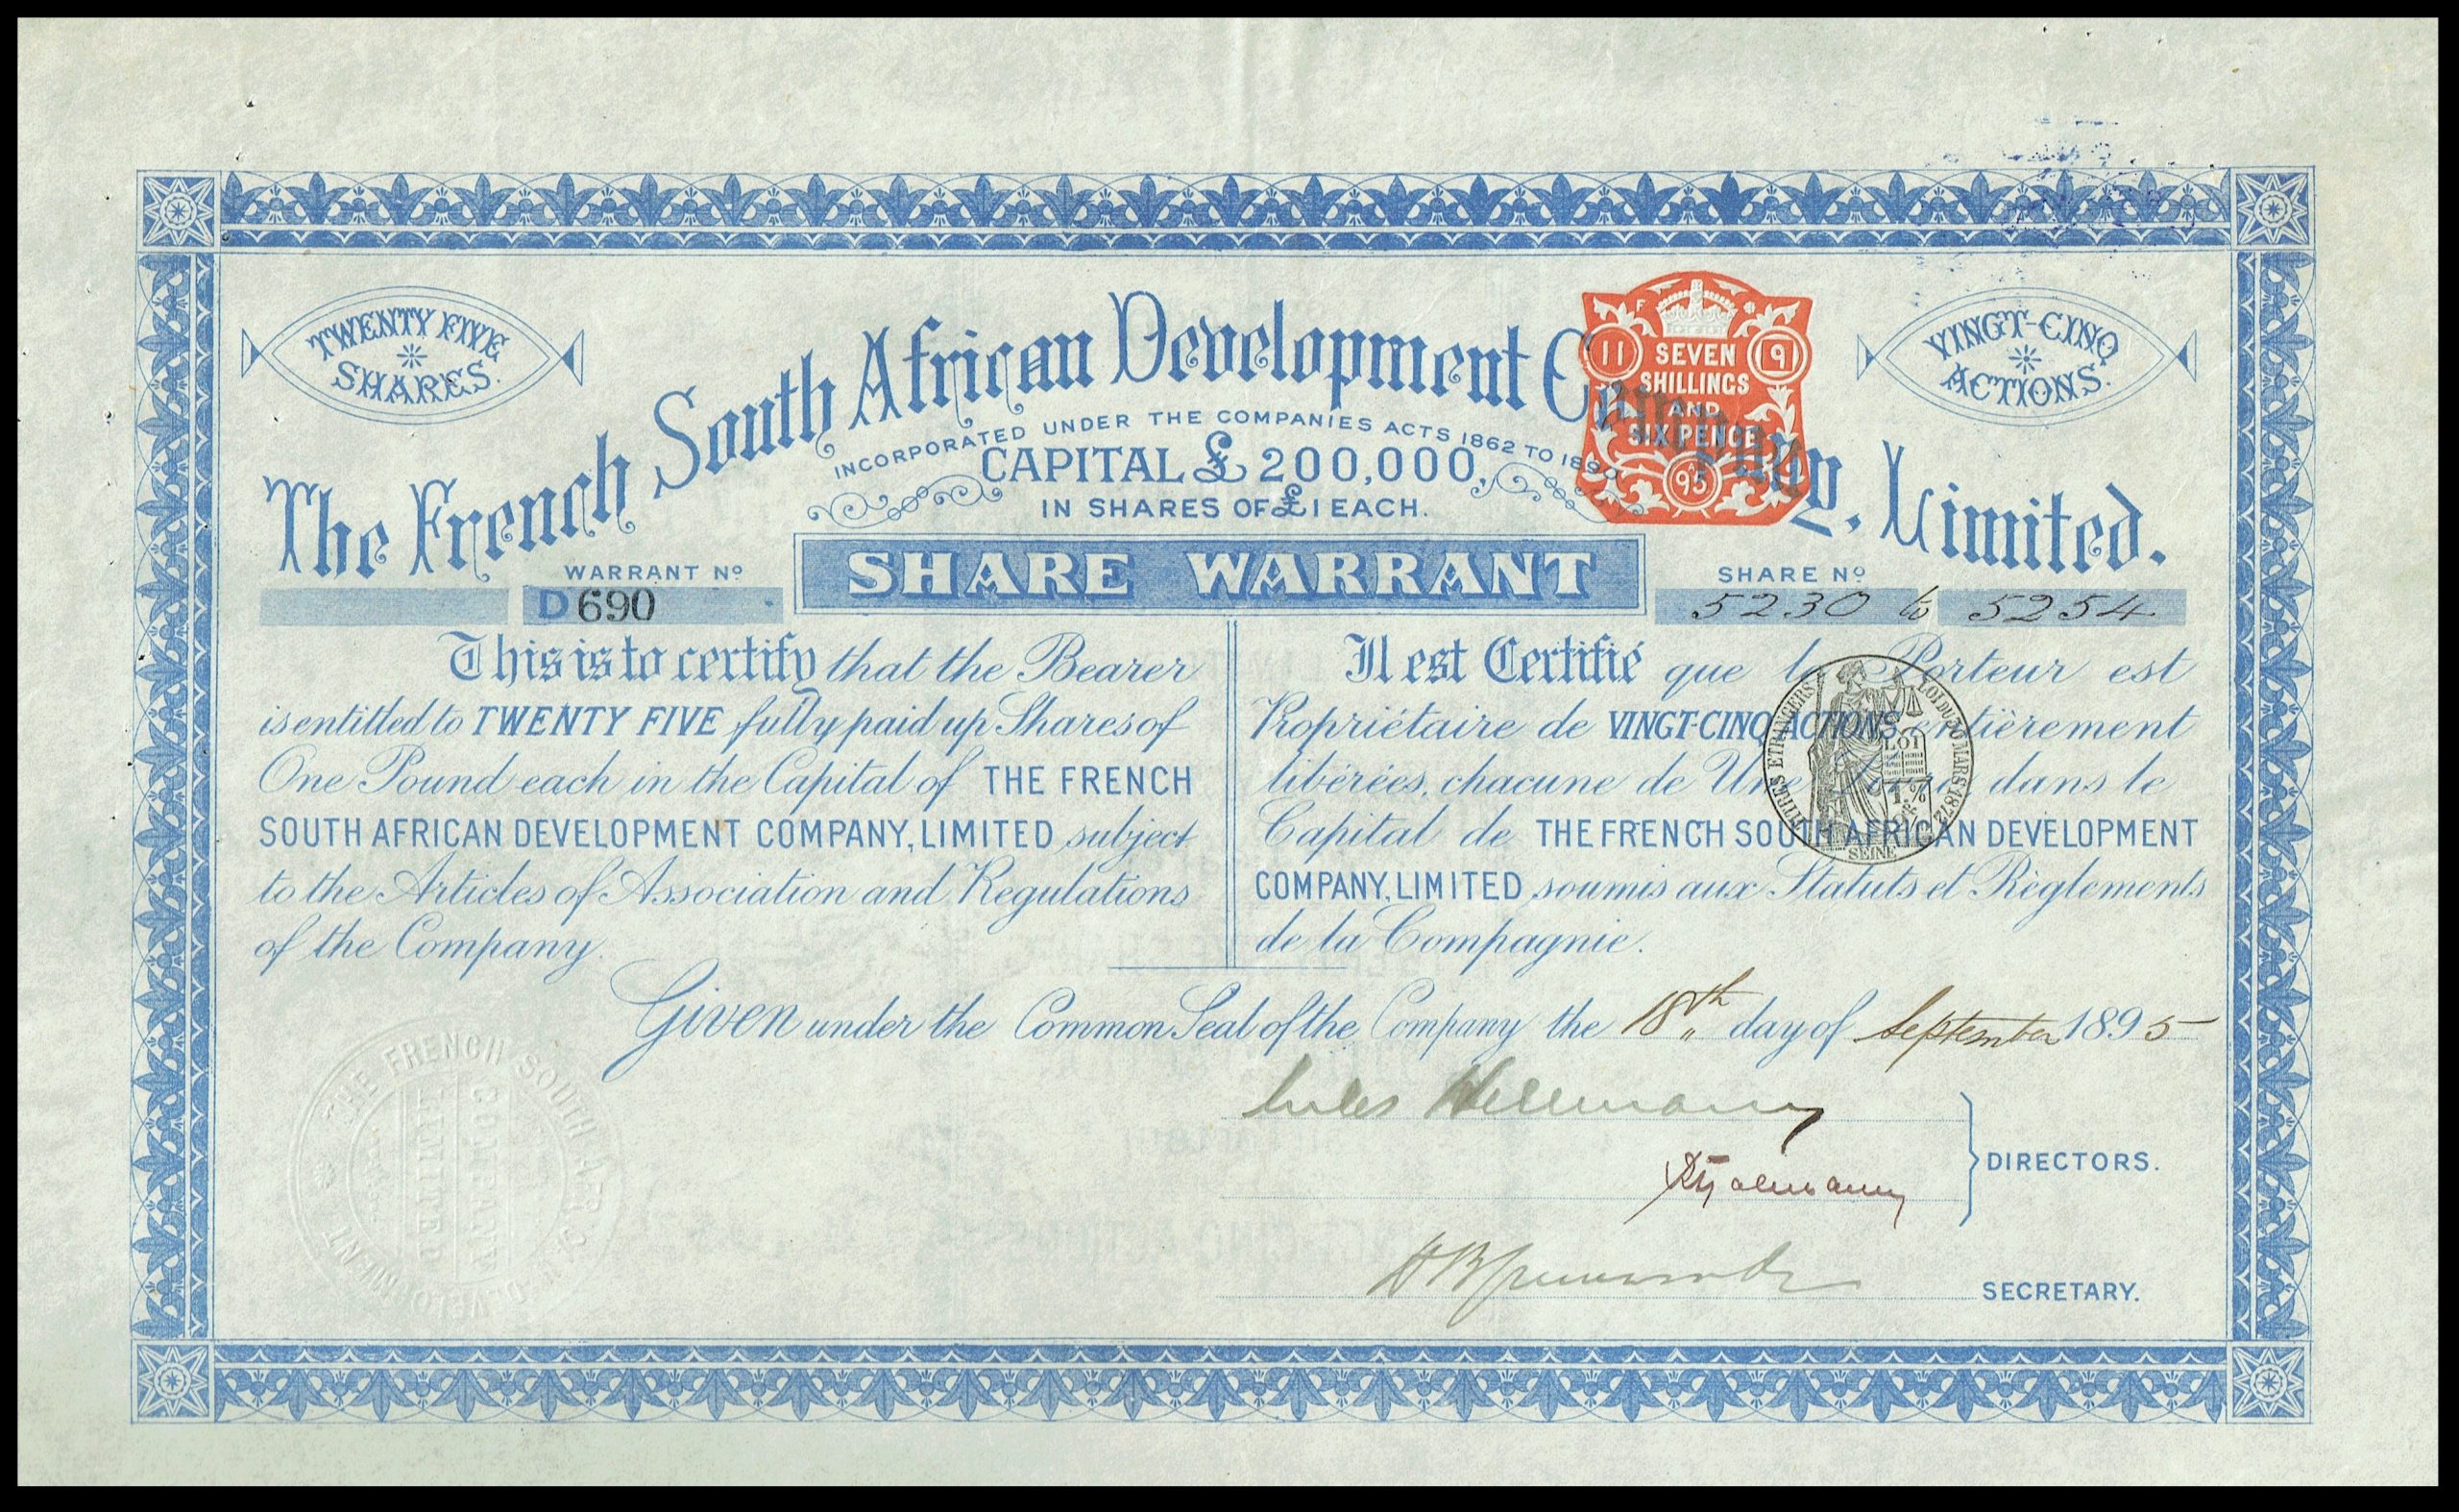 TWENTY FIVE
SHARES.
VINGT-CINQ
ACTIONS.
The French South African Development Company, Limited.
INCORPORATED UNDER THE COMPANIES ACTS 1862 TO 1890
CAPITAL £200,000,
IN SHARES OF £1 EACH.
F
11 SEVEN 9
SHILLINGS
AND
SIX PENCE
95
WARRANT Nº
D690
SHARE WARRANT
SHARE Nº
5230 to 5254
This is to certify that the Bearer
is entitled to TWENTY FIVE fully paid up Shares of
One Pound each in the Capital of THE FRENCH
SOUTH AFRICAN DEVELOPMENT COMPANY, LIMITED subject
to the Articles of Association and Regulations
of the Company.
Il est Certifié que le Porteur est
Propriétaire de VINGT-CINQ ACTIONS entièrement
libérées, chacune de Une Livre dans le
Capital de THE FRENCH SOUTH AFRICAN DEVELOPMENT
COMPANY, LIMITED soumis aux Statuts et Règlements
de la Compagnie.
TITRES ETRANGERS LOI DU 30 MARS 1872
LOI
1.%
SEINE
Given under the Common Seal of the Company the 18th day of September 1895
Jules Heilmann
DIRECTORS.
SECRETARY.
THE FRENCH SOUTH AFRICAN DEVELOPMENT
COMPANY
LIMITED